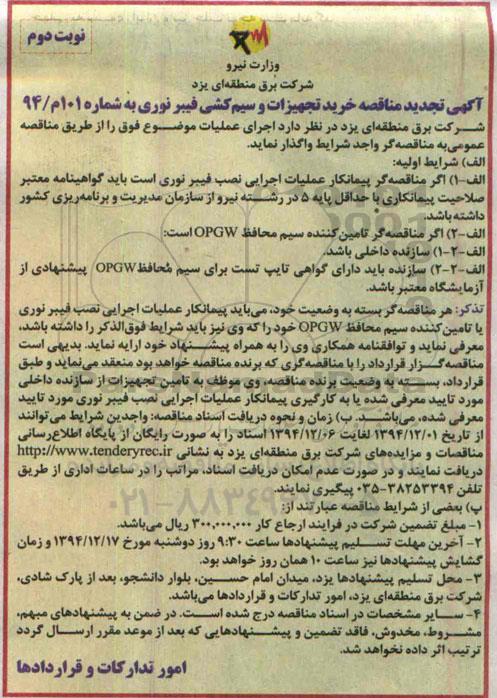 نوبت دوم
وزارت نیرو
شرکت برق منطقه‌ای یزد
آگهی تجدید مناقصه خرید تجهیزات و سیم‌کشی فیبر نوری به شماره ۱۰۱م/۹۴
شرکت برق منطقه‌ای یزد در نظر دارد اجرای عملیات موضوع فوق را از طریق مناقصه
عمومی به مناقصه‌گر واجد شرایط واگذار نماید.
الف) شرایط اولیه:
الف-۱) اگر مناقصه‌گر پیمانکار عملیات اجرایی نصب فیبر نوری است باید گواهینامه معتبر
صلاحیت پیمانکاری با حداقل پایه ۵ در رشته نیرو از سازمان مدیریت و برنامه‌ریزی کشور
داشته باشد.
الف-۲) اگر مناقصه‌گر تامین‌کننده سیم محافظ OPGW است:
الف-۲-۱) سازنده داخلی باشد.
الف-۲-۲) سازنده باید دارای گواهی تایپ تست برای سیم مُحافظ OPGW پیشنهادی از
آزمایشگاه معتبر باشد.
تذکر: هر مناقصه‌گر بسته به وضعیت خود، می‌باید پیمانکار عملیات اجرایی نصب فیبر نوری
یا تامین‌کننده سیم محافظ OPGW خود را که وی نیز باید شرایط فوق‌الذکر را داشته باشد،
معرفی نماید و توافقنامه همکاری وی را به همراه پیشنهاد خود ارایه نماید. بدیهی است
مناقصه‌گزار قرارداد را با مناقصه‌گری که برنده مناقصه خواهد بود منعقد می‌نماید و طبق
قرارداد، بسته به وضعیت برنده مناقصه، وی موظف به تامین تجهیزات از سازنده داخلی
مورد تایید معرفی شده یا به کارگیری پیمانکار عملیات اجرایی نصب فیبر نوری مورد تایید
معرفی شده، می‌باشد. ب) زمان و نحوه دریافت اسناد مناقصه: واجدین شرایط می‌توانند
از تاریخ ۱۳۹۴/۱۲/۰۱ لغایت ۱۳۹۴/۱۲/۰۶ اسناد را به صورت رایگان از پایگاه اطلاع‌رسانی
مناقصات و مزایده‌های شرکت برق منطقه‌ای یزد به نشانی http://www.tenderyrec.ir
دریافت نمایند و در صورت عدم امکان دریافت اسناد، مراتب را در ساعات اداری از طریق
تلفن ۳۸۲۵۳۳۹۴-۰۳۵ پیگیری نمایند.
پ) بعضی از شرایط مناقصه عبارتند از:
۱- مبلغ تضمین شرکت در فرایند ارجاع کار ۳۰۰,۰۰۰,۰۰۰ ریال می‌باشد.
۲- آخرین مهلت تسلیم پیشنهادها ساعت ۹:۳۰ روز دوشنبه مورخ ۱۳۹۴/۱۲/۱۷ و زمان
گشایش پیشنهادها نیز ساعت ۱۰ همان روز خواهد بود.
۳- محل تسلیم پیشنهادها یزد، میدان امام حسین، بلوار دانشجو، بعد از پارک شادی،
شرکت برق منطقه‌ای یزد، امور تدارکات و قراردادها می‌باشد.
۴- سایر مشخصات در اسناد مناقصه درج شده است. در ضمن به پیشنهادهای مبهم،
مشروط، مخدوش، فاقد تضمین و پیشنهادهایی که بعد از موعد مقرر ارسال گردد
ترتیب اثر داده نخواهد شد.
امور تدارکات و قراردادها